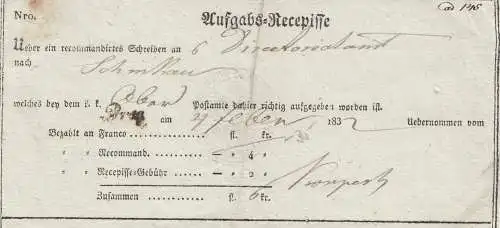 ad 145
Nro. Aufgabs-Recepisse
Ueber ein recommandirtes Schreiben an Directorialamt
nach Schinkau
welches bey dem k. k. Ober Postamte dahier richtig aufgegeben worden ist.
Prag am 4 Feber 1832 Uebernommen vom
Bezahlt an Franco . . . . . . . . . . fl. kr.
" " Recommand. . . . . . . . . — " 4 "
" " Recepisse-Gebühr . . . . — " 2 "
Zusammen . . . . . . fl. 6 kr.